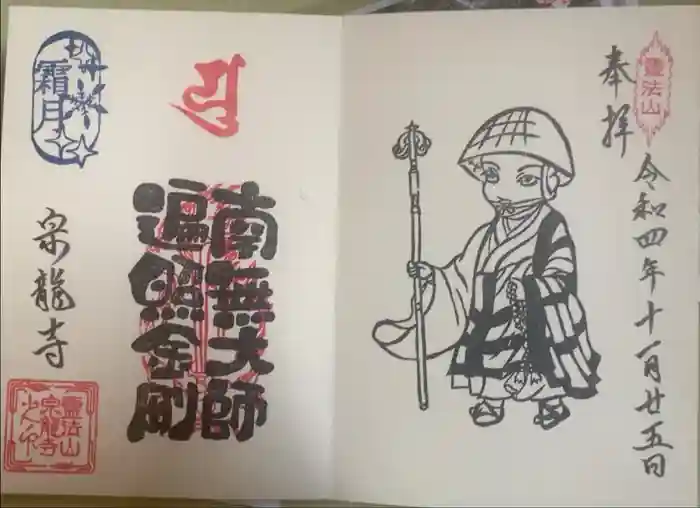 霊法山
奉拝
令和四年十一月廿五日
南無大師
遍照金剛
霜月
宗龍寺
霊法山
宗龍寺
之印